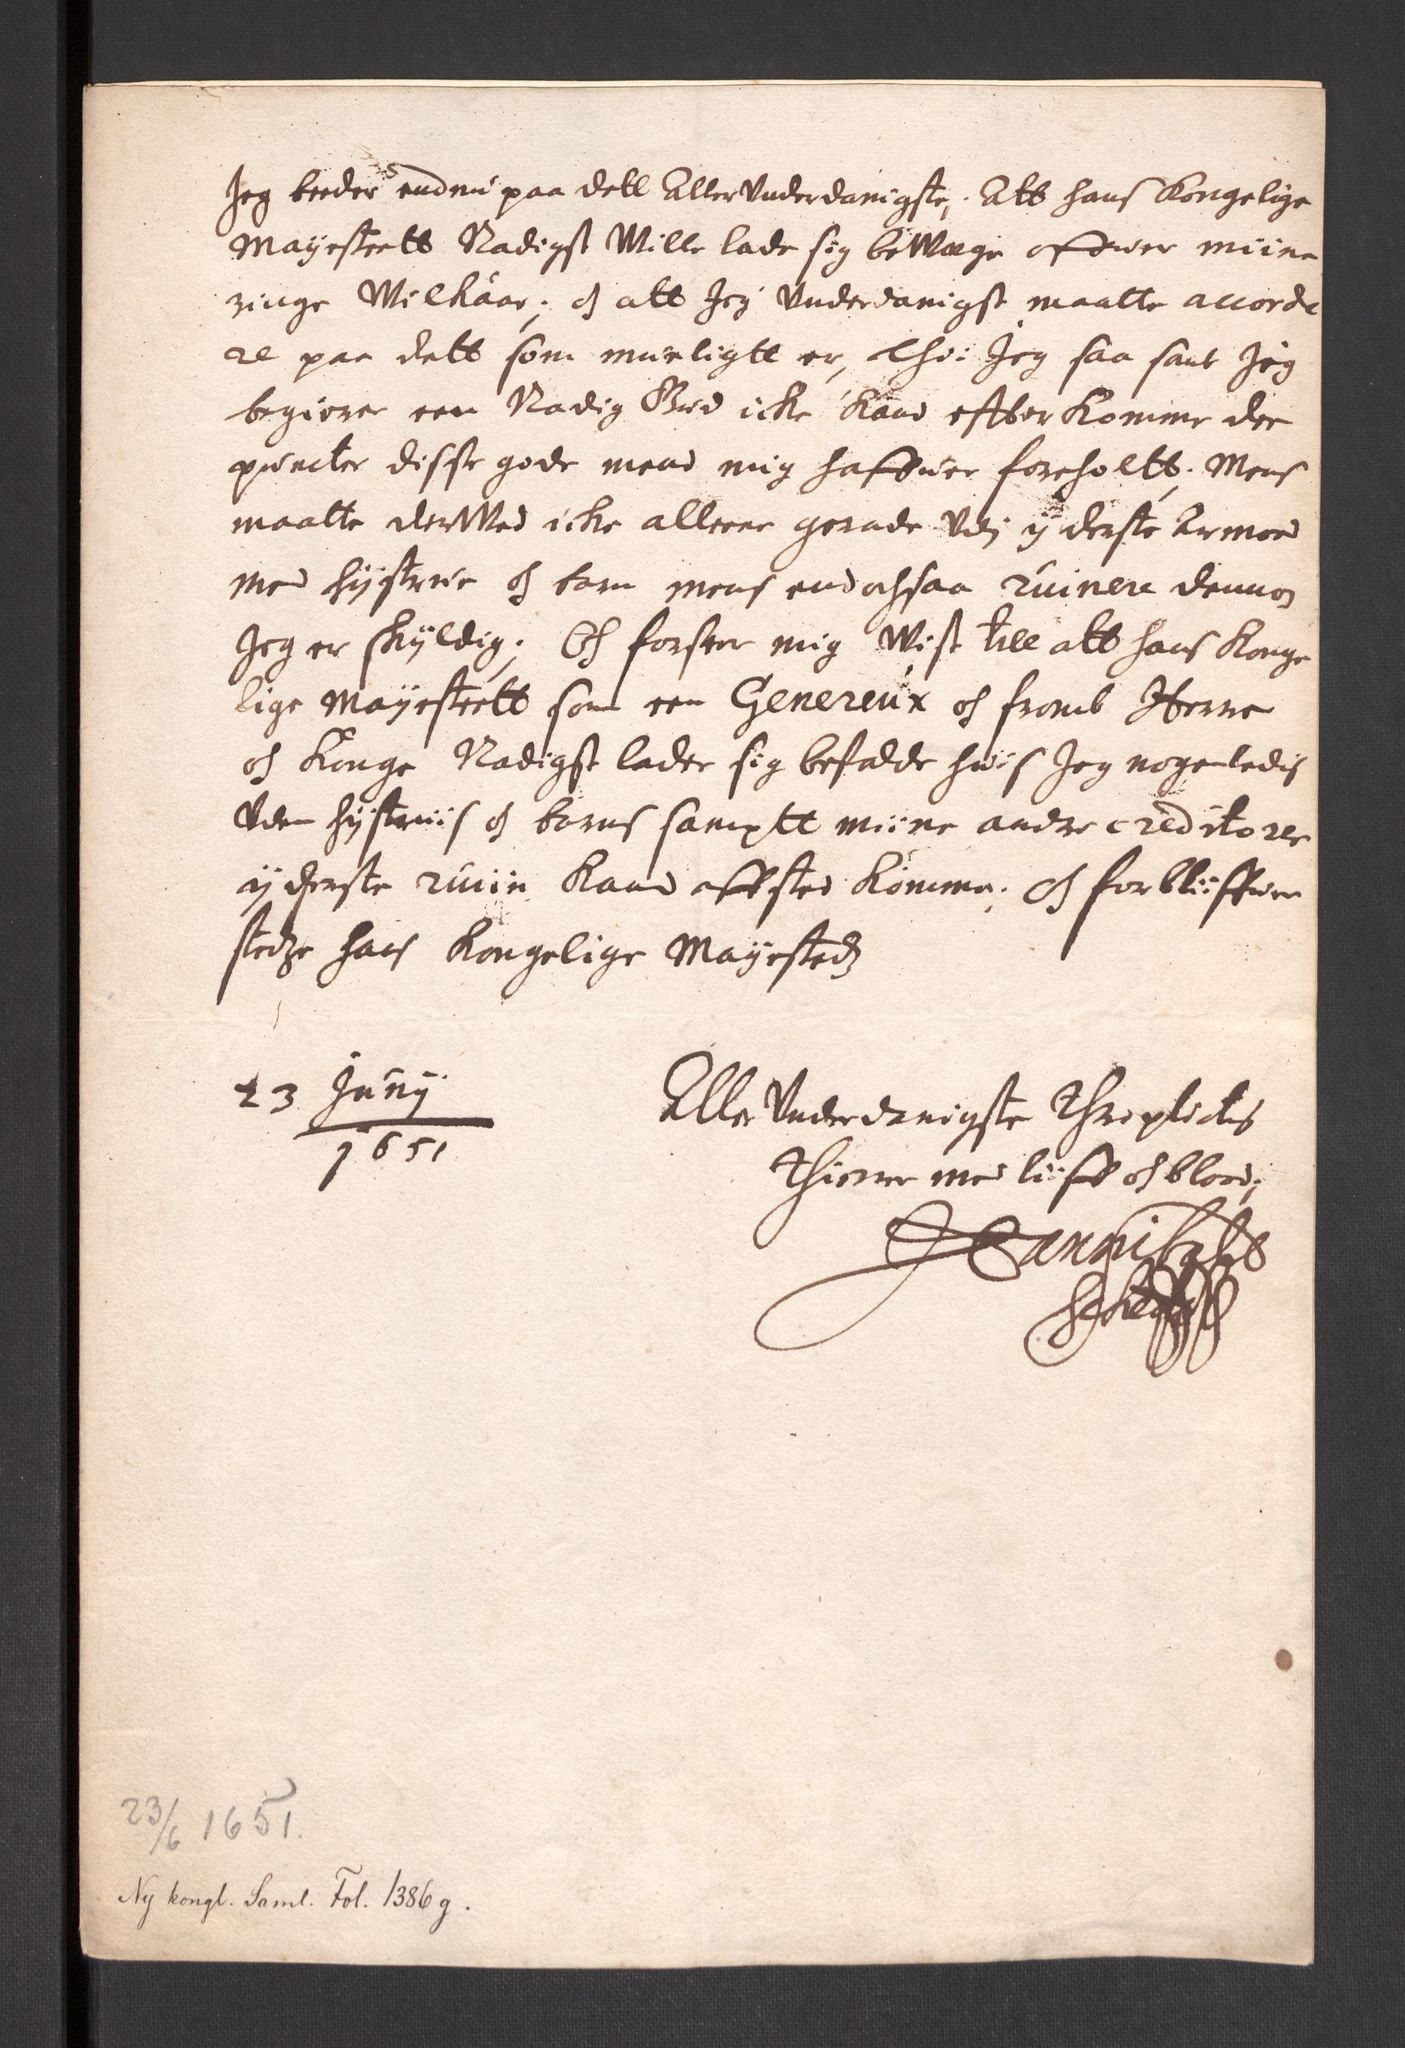 Jeg beeder endnu paa dett Allerunderdanigste, Att hans Kongelige
Mayesteett Nadigst Wille lade sig beWæge offwer miine
ringe Wilkaar, och att Jeg Underdanigst maatte accorde
re paa dett som mueligtt er, thi Jeg saa sant Jeg
begierer een Nadig Gud icke kand efterkomme dee
puncter disse gode mend mig haffuer foreholtt, Mens
maatte derWed icke alleene gerade Udj yderste Armod
med hystrue och børn mens endochsaa ruinere dennom
Jeg er skyldig; Och forseer mig Wist till att hans Konge
lige Mayesteett som een Genereux och fromb Herre
och Konge Nadigst lader sig befalde hwis Jeg nogenledis
Uden hystruis och børns samptt miine andre creditorer
yderste ruiin kand affsted komme, och forbliffwer
stedze hans Kongelige Mayestedz
23 Juny
1651
Aller Underdanigste Throplictis
Thiener med liiff och blood;
Hannibahl
Sehested
23/6 1651.
Ny kongl. Saml. Fol. 1386 g.